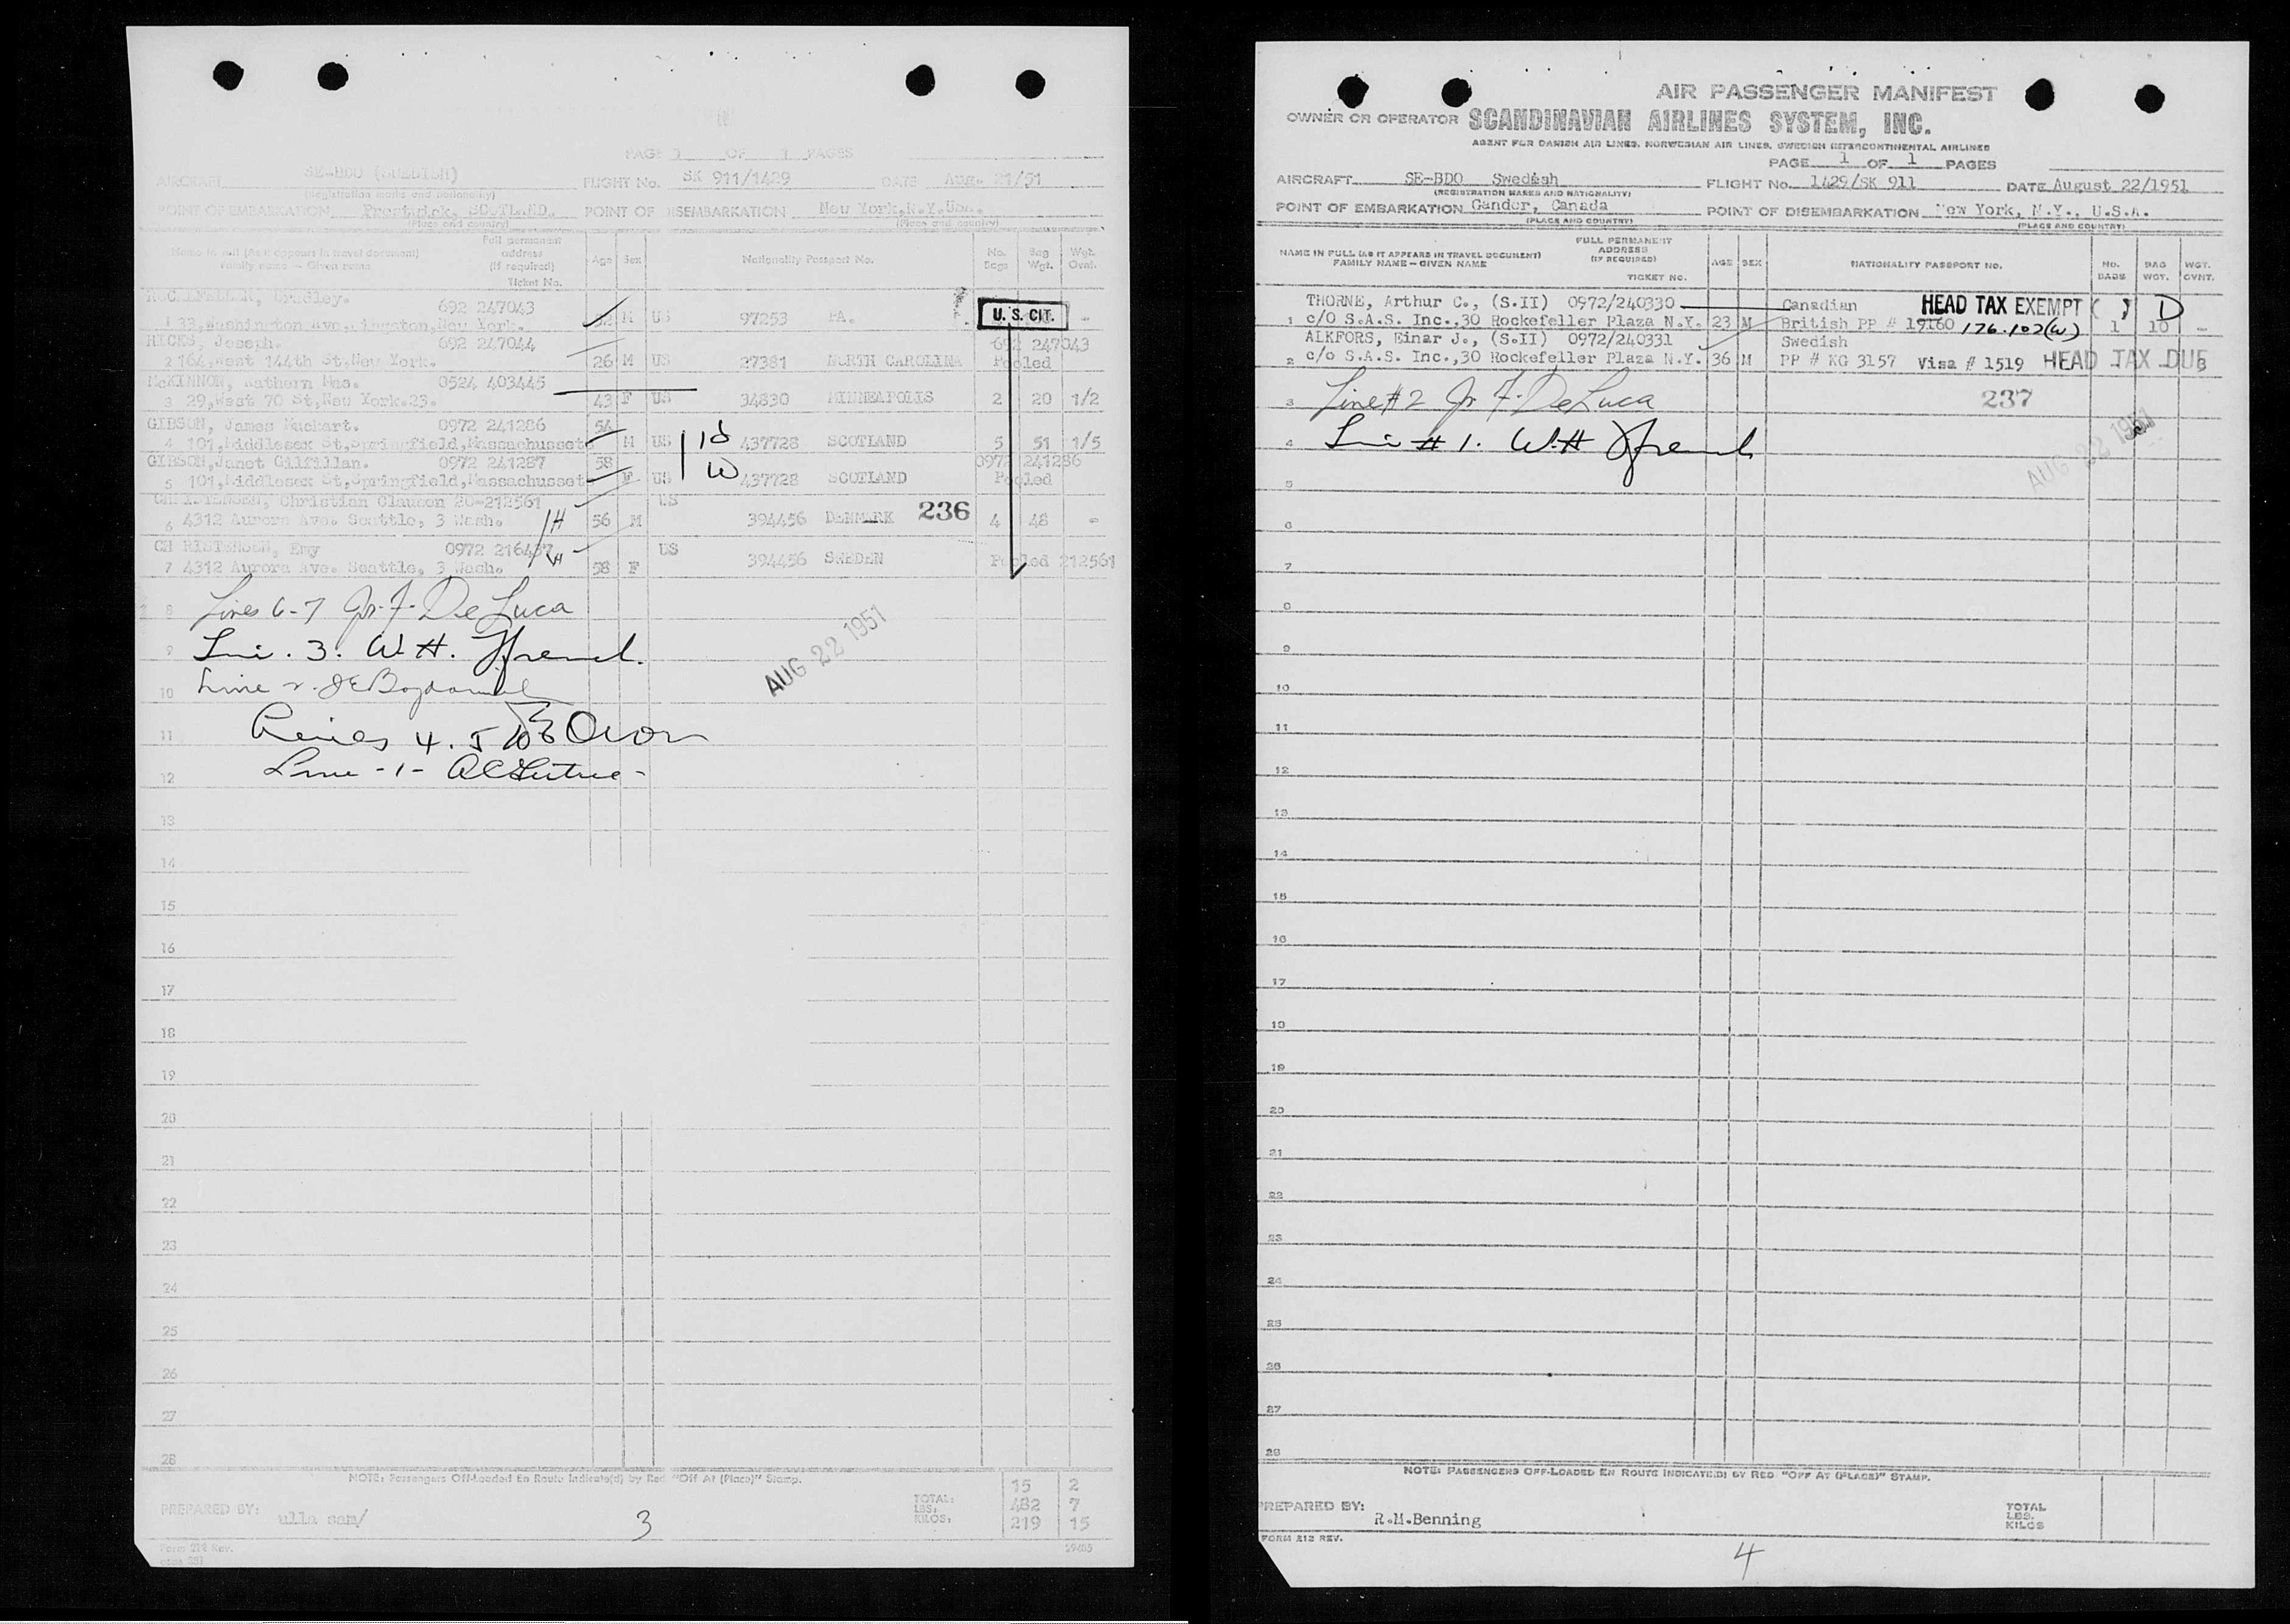 PAGE 1 OF 1 PAGES
AIRCRAFT SE-BDO (SWEDISH) FLIGHT No. SK 911/1429 DATE Aug. 21/51
(Registration marks and nationality)
POINT OF EMBARKATION Prestwick, SCOTLAND. POINT OF DISEMBARKATION New York,N.Y.Usa.
(Place and country) (Place and country)
Name in full (As it appears in travel document) Full permanent address (If required) Age Sex Nationality Passport No. No. Bags Bag Wgt. Wgt. Ovnt.
Family name — Given name Ticket No.
Bradley. 692 247043
1 33,Washington Ave, New York. M US 97253 PA. U. S. CIT. -
HICKS, Joseph. 692 247044 692 247043
2 164,West 144th St,New York. 26 M US 27381 NORTH CAROLINA Pooled
McKINNON, Kathern Mae. 0524 403445
3 29,West 70 St,New York.23. 43 F US 34830 MINNEAPOLIS 2 20 1/2
GIBSON, James 0972 241286 54
4 101,Middlesex St,Springfield,Massachusset M US 437728 SCOTLAND 5 51 1/5
GIBSON,Janet Gilfillan. 0972 241287 58 0972 241286
5 101,Middlesex St,Springfield,Massachusset F US W 437728 SCOTLAND Pooled
CHRISTENSEN, Christian Clausen 20-212561 US
6 4312 Aurora Ave. Seattle, 3 Wash. H 56 M 394456 DENMARK 236 4 48 -
CH RISTENSEN, Emy 0972 216437 US
7 4312 Aurora Ave. Seattle, 3 Wash. W 58 F 394456 SWEDEN Pooled 212561
8 Lines 6-7 Jr. F. DeLuca
9 Line. 3. W. H. French.
10 Line 2.
AUG 22 1951
11 Lines 4. 5
12 Line -1-
13
14
15
16
17
18
19
20
21
22
23
24
25
26
27
28
NOTE: Passengers Off-Loaded En Route Indicate(d) by Red "Off At (Place)" Stamp.
15 2
TOTAL:
LBS: 482 7
KILOS: 219 15
PREPARED BY: ulla sam/
3
Form 212 Rev.
AIR PASSENGER MANIFEST
OWNER OR OPERATOR SCANDINAVIAN AIRLINES SYSTEM, INC.
AGENT FOR DANISH AIR LINES, NORWEGIAN AIR LINES, SWEDISH INTERCONTINENTAL AIRLINES
PAGE 1 OF 1 PAGES
AIRCRAFT SE-BDO Swedish FLIGHT No. 1429/SK 911 DATE August 22/1951
(REGISTRATION MARKS AND NATIONALITY)
POINT OF EMBARKATION Gander, Canada POINT OF DISEMBARKATION New York, N.Y., U.S.A.
(PLACE AND COUNTRY) (PLACE AND COUNTRY)
NAME IN FULL (AS IT APPEARS IN TRAVEL DOCUMENT) FULL PERMANENT ADDRESS (IF REQUIRED) AGE SEX NATIONALITY PASSPORT NO. NO. BAGS BAG WGT. WGT. OVNT.
FAMILY NAME — GIVEN NAME TICKET NO.
THORNE, Arthur C., (S.II) 0972/240330 Canadian HEAD TAX EXEMPT ( ) D
1 c/O S.A.S. Inc.,30 Rockefeller Plaza N.Y. 23 M British PP # 19160 176.102(W) 1 10 -
ALKFORS, Einar J., (S.II) 0972/240331 Swedish
2 c/o S.A.S. Inc.,30 Rockefeller Plaza N.Y. 36 M PP # KG 3157 Visa # 1519 HEAD TAX DUE
3 Line #2 Jr. F. DeLuca 237
4 Line # 1. W. H. French
AUG 22 1951
5
6
7
8
9
10
11
12
13
14
15
16
17
18
19
20
21
22
23
24
25
26
27
28
NOTE: PASSENGERS OFF-LOADED EN ROUTE INDICATE(D) BY RED "OFF AT (PLACE)" STAMP.
PREPARED BY: R.M.Benning
TOTAL
LBS.
KILOS
FORM 212 REV.
4